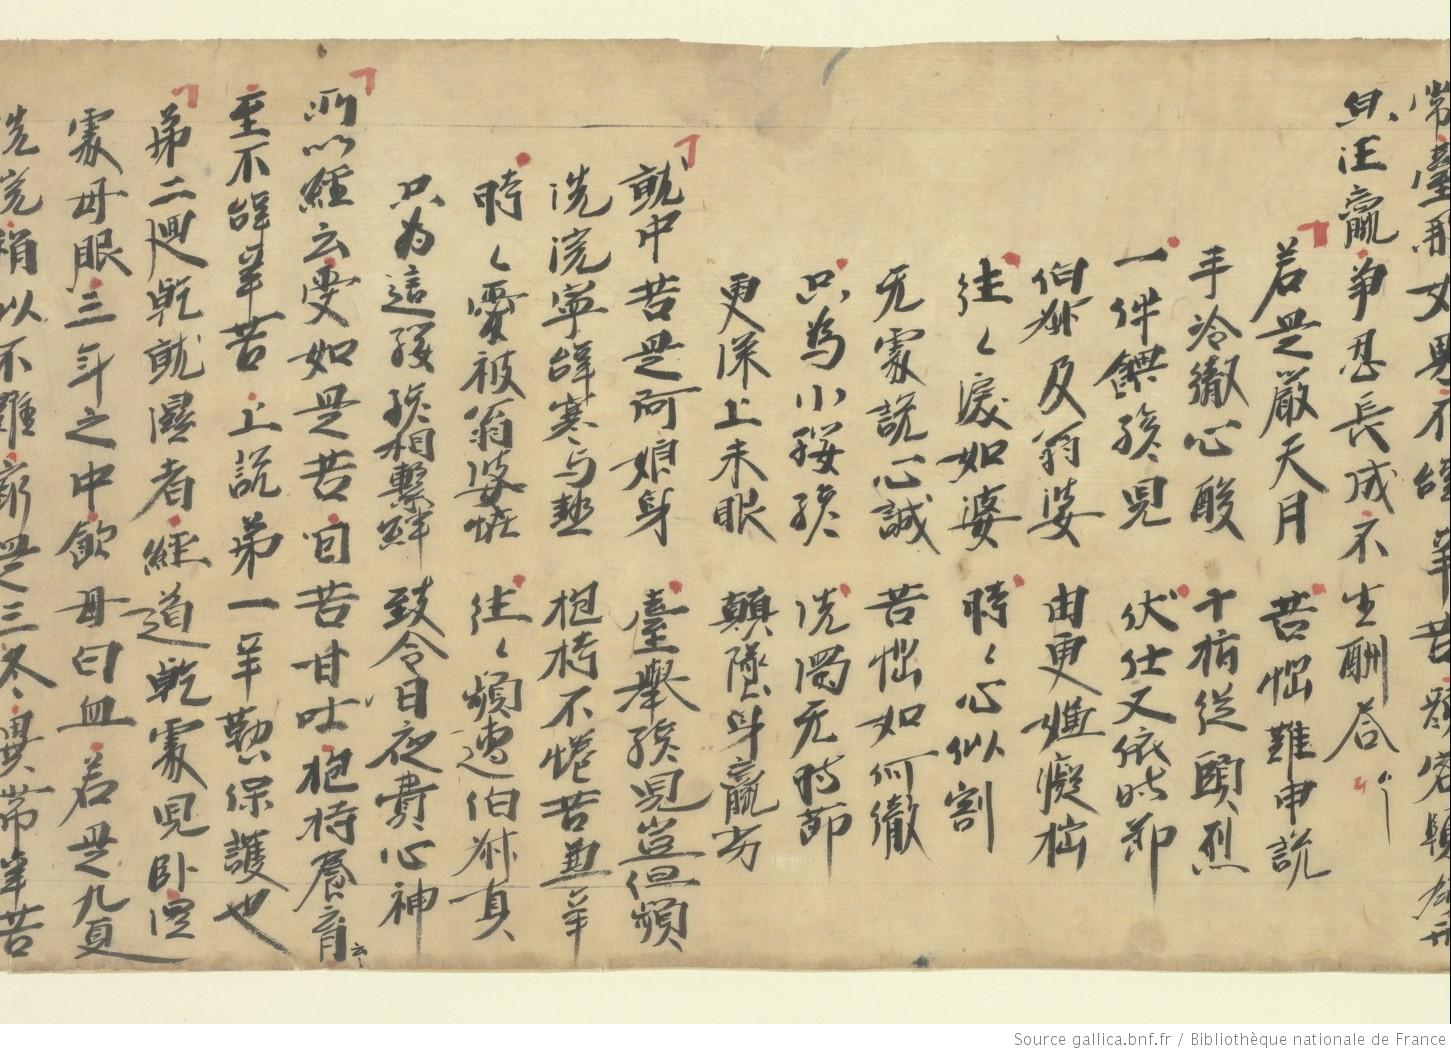 常臺舉女男不辭辛苦
貝汪羸爭忍長成不生酬荅
若是嚴天月 苦惱難申說
手冷徹心酸 十指從頭烈
一件饌孩兒 伏仕又依時節
伯㑛及翁婆 由更嫌癡拙
往〻淚如婆 時〻心似割
无處說心誠 苦惱如何徹
只為小孾孩 洗濁无時節
更深上未眠 顛墜身羸劣
就中苦是阿娘身 臺舉孩兒豈但頻
洗浣寧辭寒与熱 抱持不惓苦兼辛
時〻愛被翁婆恠 往〻頻遭伯㑛真
只为這孾孩相繫絆 致令日夜費心神
所以經云受如是苦 咽苦甘吐 抱持養育 云〻
至不辭辛苦 上說弟一辛勤保護也
弟二迴乾就濕者 經道 乾處兒卧 濕
處母眼 三年之中 飲母白血 若是九夏
洗浣 稍以不難 窮是三冬 異常辛苦
Source gallica.bnf.fr / Bibliothèque nationale de France